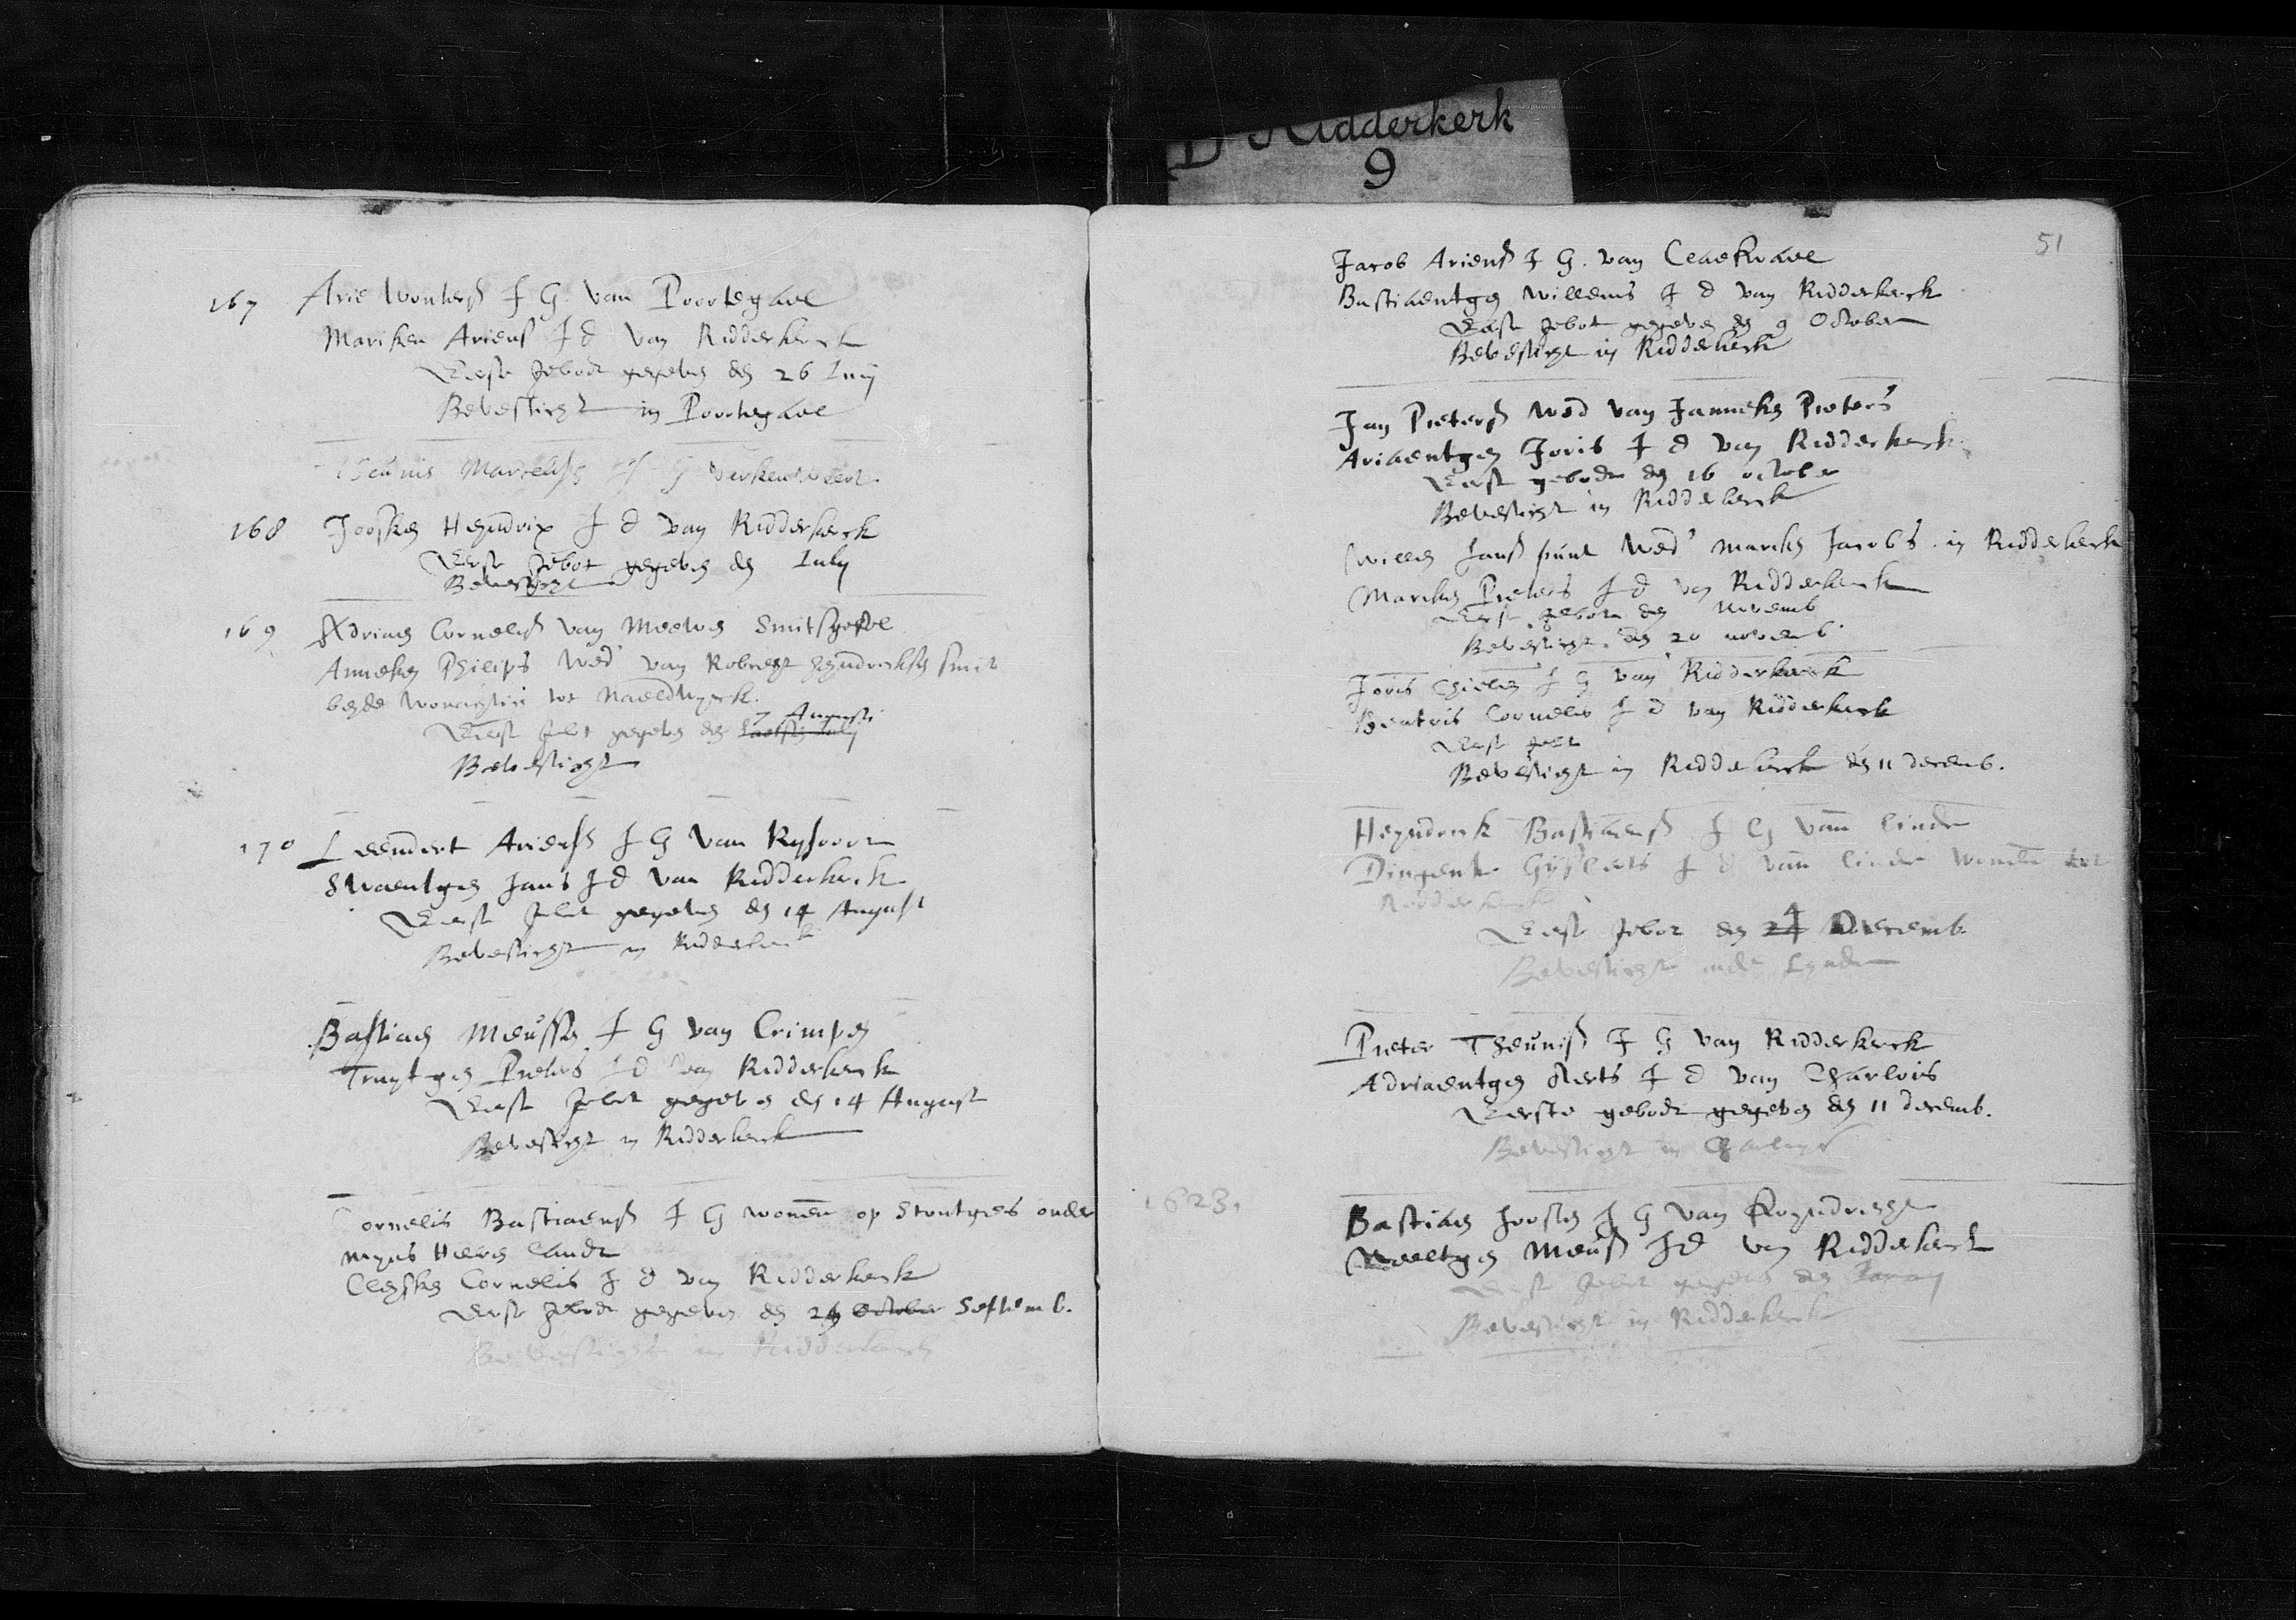 D Ridderkerk
9
167 Arie Wouters J G. van Poortegael
Mariken Ariens J d van Ridderkerck
Eerste gebodt gegeven den 26 Junij
Bevesticht in Poortegael
Theunis Marcelissz J G
168 Joosken Heyndrix J d van Ridderkerck
Eerste gebot gegeven den July
Bevesticht
169 Adriaen Cornelisz van Meeuwen Smitsgesel
Anneken Philips Wed' van Robrecht Heyndericksen smit
beyde wonachtich tot Naeldwyck.
7 Augusti
Eerst gebot gegeven den Laesten July
Bevesticht
170 Leendert Ariensz J G van Rysoort
Swaentgen Jans J d van Ridderkerck
Eerst gebot gegeven den 14 August
Bevesticht in Ridderkerck
Bastiaen Meussen J G van Crimpen
Truytgen Pieters J d van Ridderkerck
Eerst gebot gegeven den 14 August
Bevesticht in Ridderkerck
Cornelis Bastiaensz J G wonen op Stoutges onder
Claude
Cleysken Cornelis J d van Ridderkerck
Eerst gebodt gegeven den 29 October Septemb.
Bevesticht in Ridderkerck
51
Jacob Ariensz J G. van
Bastiaentgen Willems J d van Ridderkerck
Eerst gebot gegeven den 9 October
Bevesticht in Ridderkerck
Jan Pietersz Wed van Janneken Pieters
Ariaentgen Joris J d van Ridderkerck.
Eerst gebodt den 16 october
Bevesticht in Ridderkerck
Willem Jansz punt Wed' Mariken Jacobs in Ridderkerck
Mariken Pieters J d van Ridderkerck
Eerst gebot den Novemb
Bevesticht den 20 novemb.
Joris Thielen J G van Ridderkerck
Beatris Cornelis J d van Ridderkerck
Eerst gebot
Bevesticht in Ridderkerck den 11 decemb.
Heyndrick Bastiaensz J G van linde
Dingentie Gysberts J d van linde wonen tot
Ridderkerck
Eerst gebot den 24 4 Decemb.
Bevesticht inde Lynde
Pieter Theunisz J G van Ridderkerck
Adriaentgen Aerts J d van Charlois
Eerste gebodt gegeven den 11 decemb.
Bevesticht in
1623.
Bastiaen Joosten J G van Heyndrecht
Neeltgen Meusz J d van Ridderkerck
Eerst gebot gegeven den January
Bevesticht in Ridderkerck